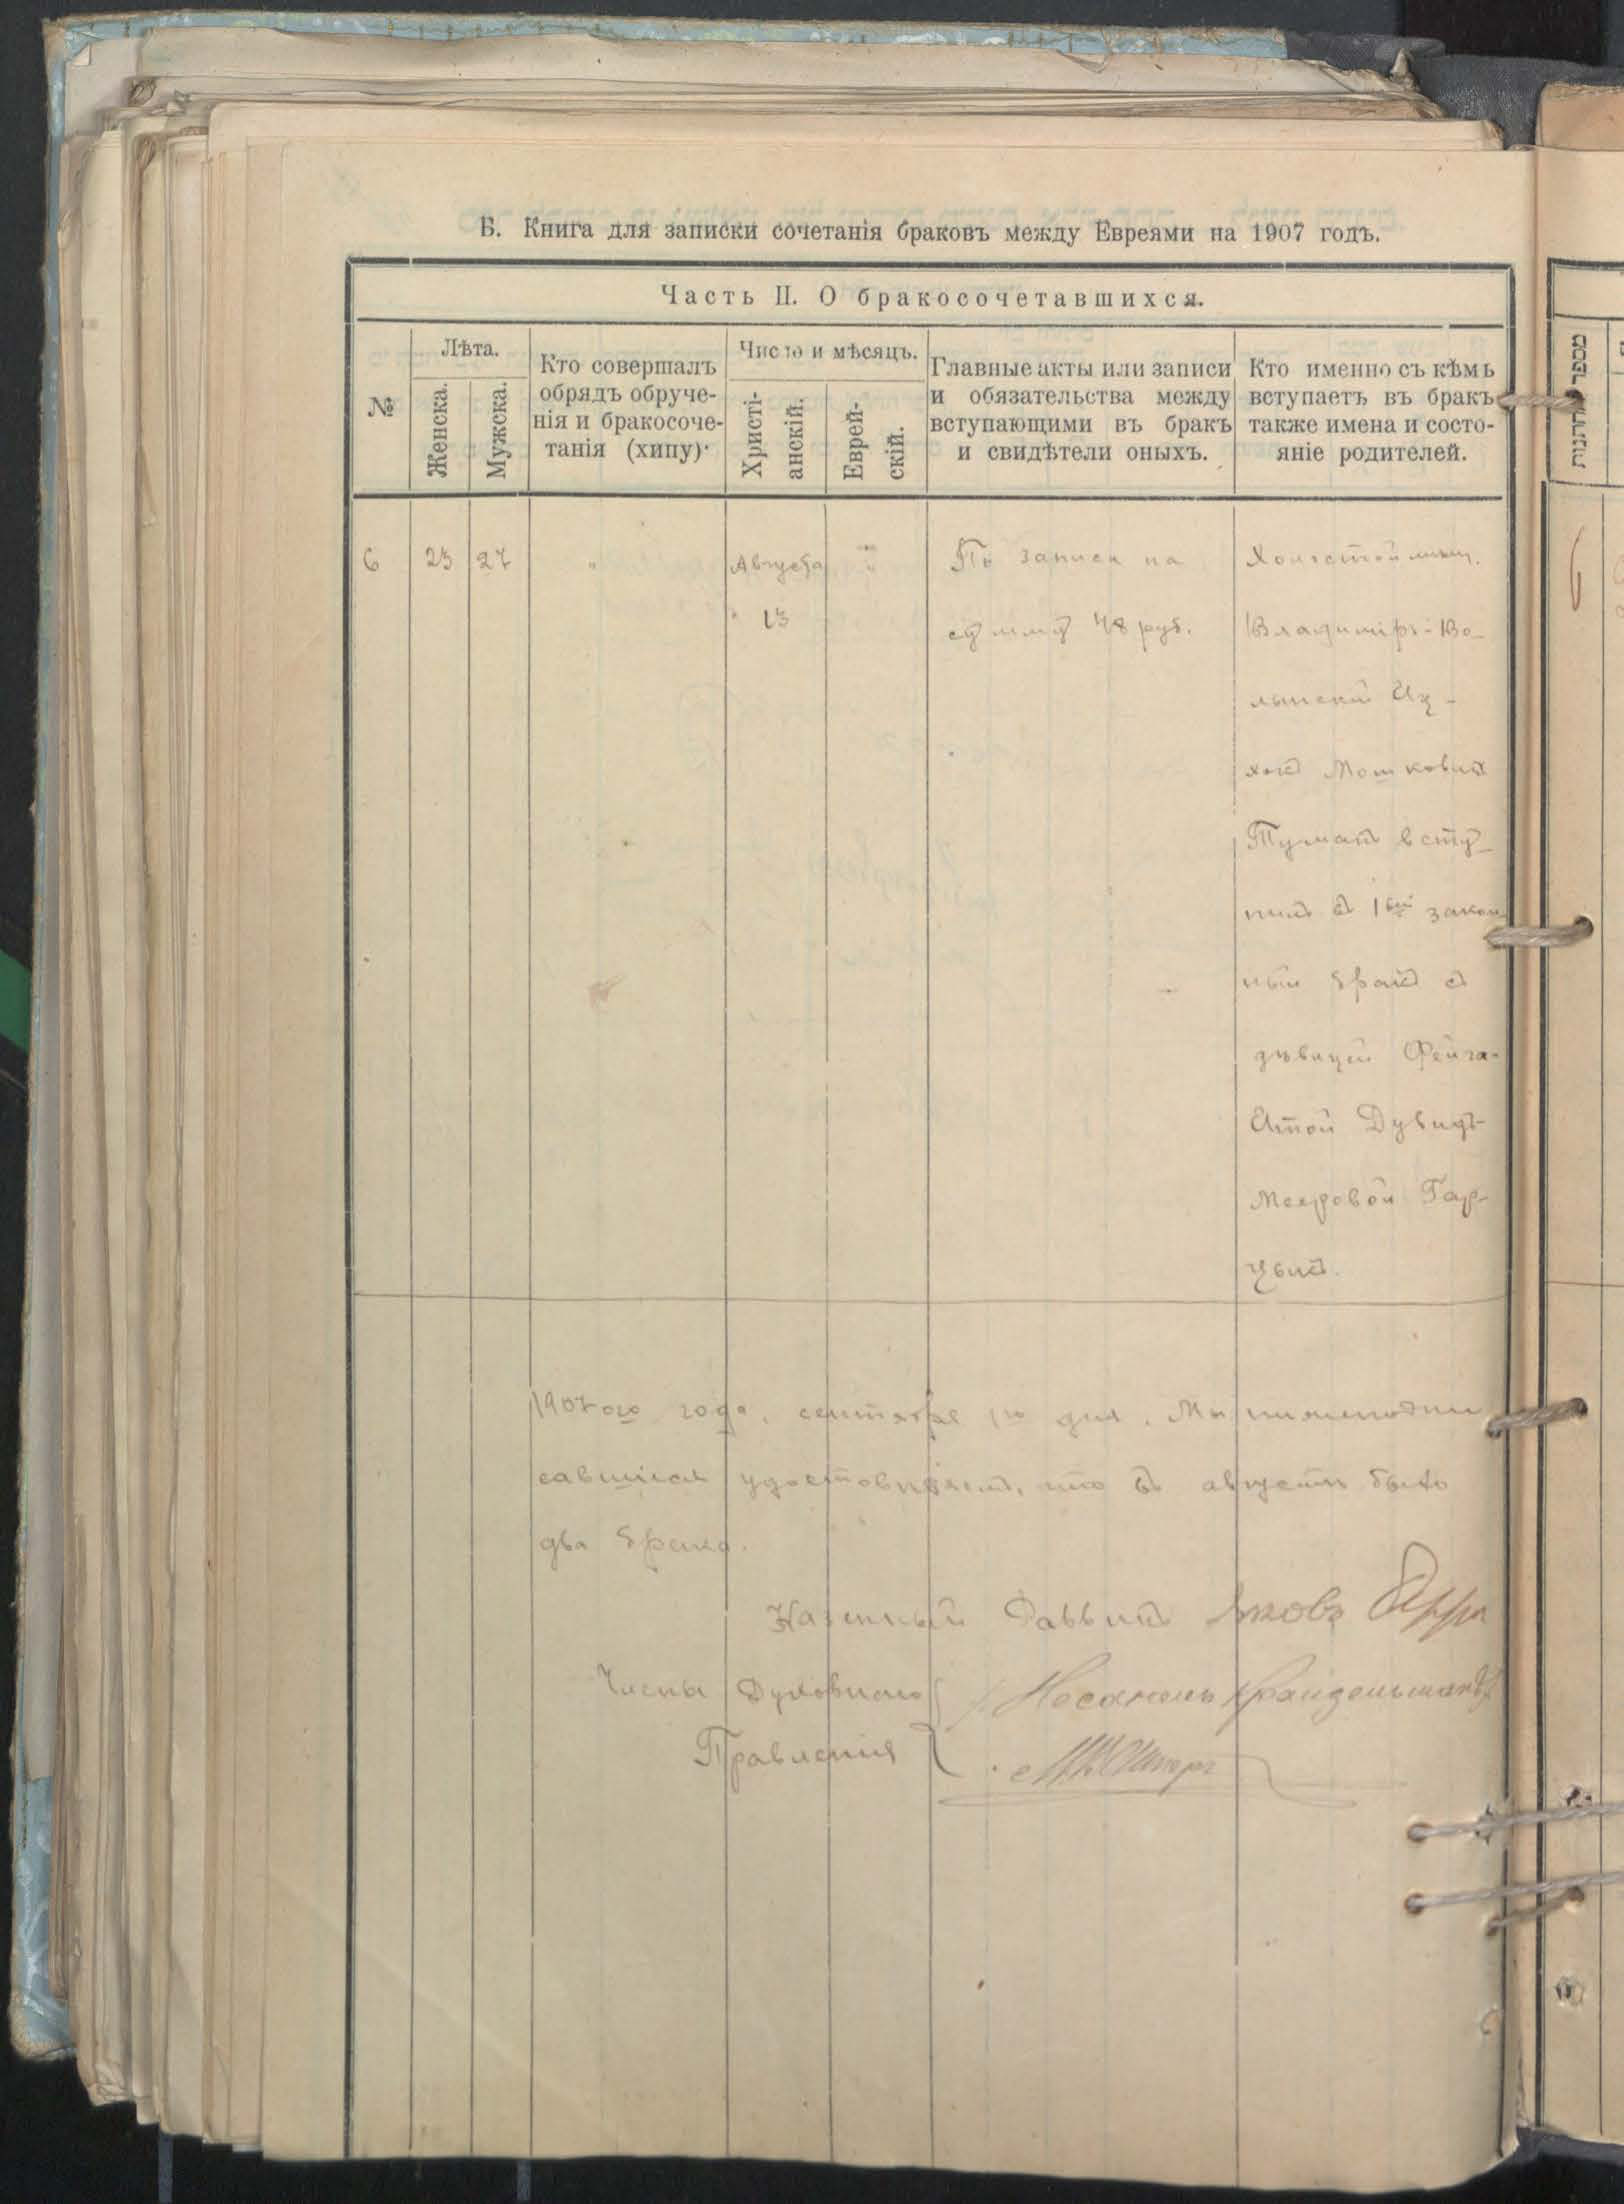 Б. Книга для записки сочетанія браковъ между Евреями на 1907 годъ.
Часть II. О бракосочетавшихся.
№
Лѣта.
Женска.
Мужска.
Кто совершалъ
обрядъ обруче-
нія и бракосоче-
танія (хипу)·
Число и мѣсяцъ.
Христі-
анскій.
Еврей-
скій.
Главные акты или записи
и обязательства между
вступающими въ бракъ
и свидѣтели оныхъ.
Кто именно съ кѣмъ
вступаетъ въ бракъ
также имена и состо-
яніе родителей.
6
23
27
"
Августа
13
"
По записи на
сумму 48 руб.
Холостой мѣщ.
Владиміръ-Во-
лынскій Иц-
хокъ Мошковичъ
Туманъ всту-
пилъ въ 1ый закон-
ный бракъ съ
дѣвицей Фейга-
Итой Дувидъ-
Мееровой Гар-
цвикъ.
1907ого года, сентября 1го дня. Мы нижеподпи
савшіеся удостовѣряемъ, что въ августѣ было
два брака.
Казенный Раввинъ Яковъ
Члены Духовнаго
Правленія
מספר